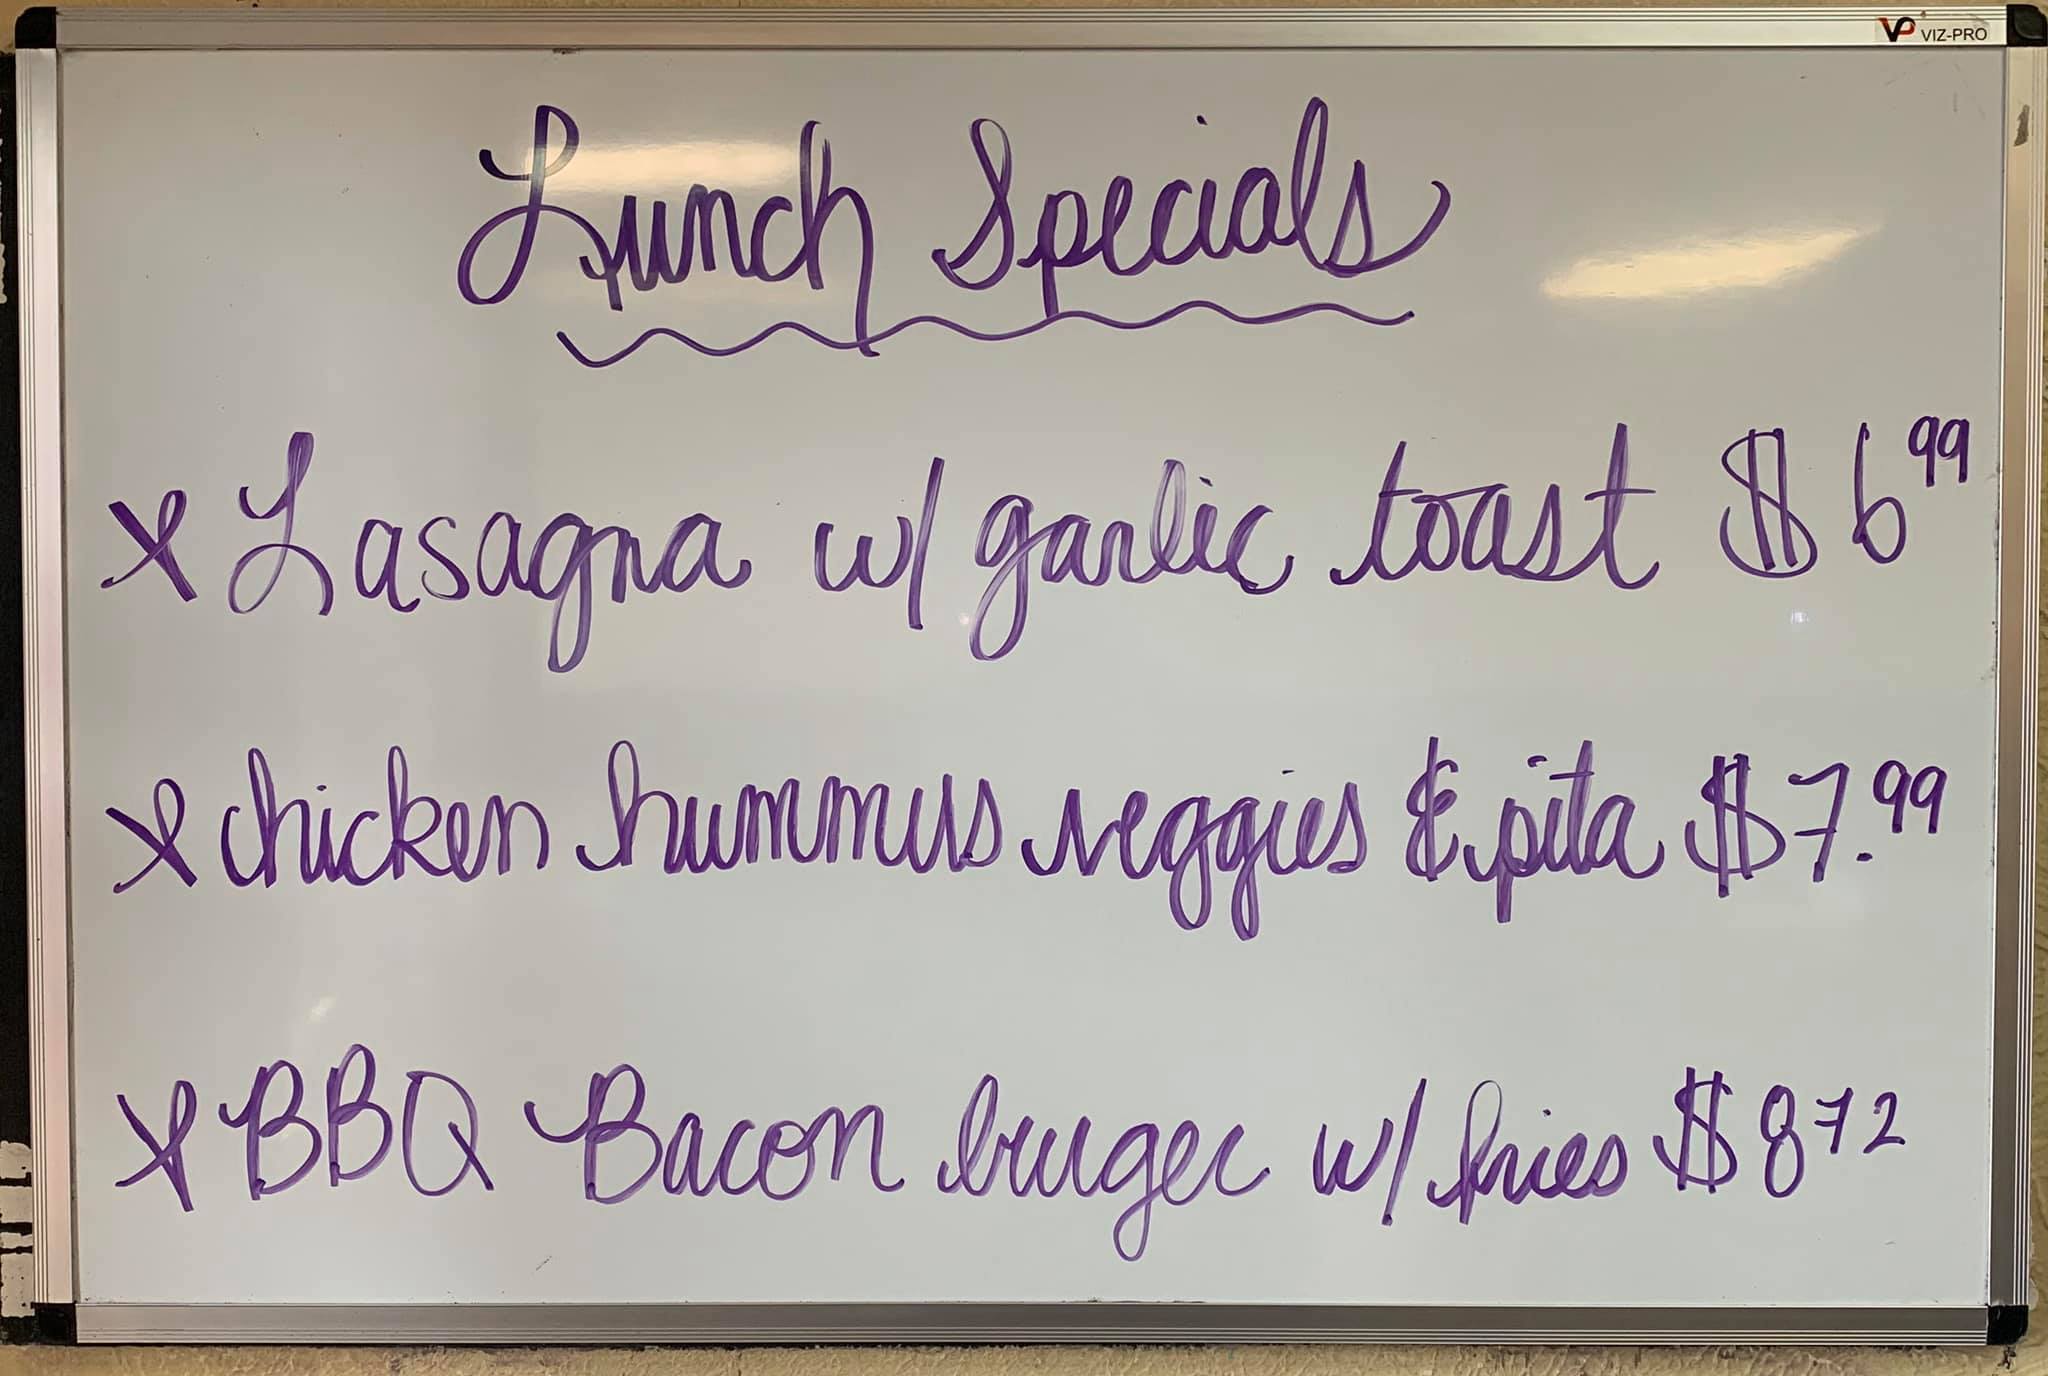 VP VIZ-PRO
Lunch Specials
x Lasagna w/ garlic toast $6 99
x chicken hummus veggies & pita $7.99
x BBQ Bacon burger w/ fries $8 72